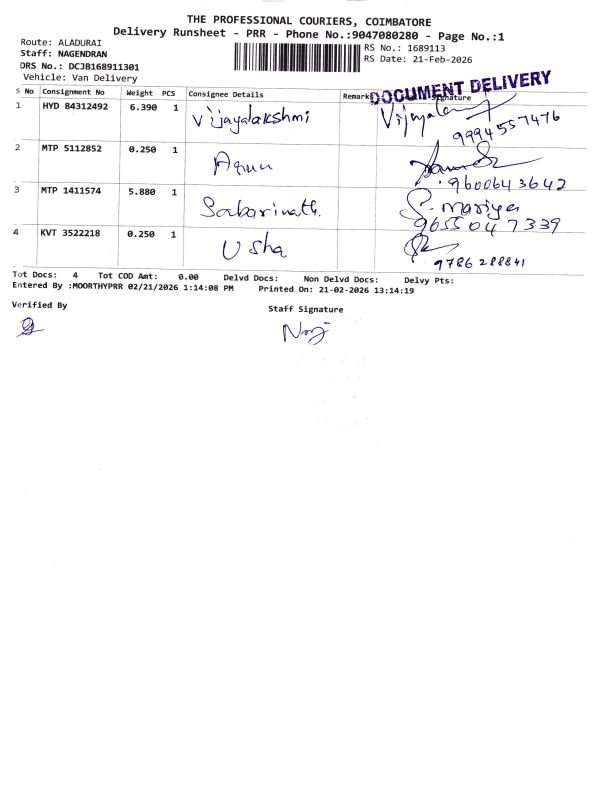 THE PROFESSIONAL COURIERS, COIMBATORE
Delivery Runsheet - PRR - Phone No.:9047080280 - Page No.:1
Route: ALADURAI
Staff: NAGENDRAN
DRS No.: DCJB168911301
Vehicle: Van Delivery
RS No.: 1689113
RS Date: 21-Feb-2026
DOCUMENT DELIVERY
S No Consignment No Weight PCS Consignee Details Remarks Signature
1 HYD 84312492 6.390 1 Vijayalakshmi
9994557476
2 MTP 5112852 0.250 1 Arun
9600643642
3 MTP 1411574 5.880 1 Sabarinath. S. Mariya
9655047339
4 KVT 3522218 0.250 1 Usha
9786288841
Tot Docs: 4 Tot COD Amt: 0.00 Delvd Docs: Non Delvd Docs: Delvy Pts:
Entered By :MOORTHYPRR 02/21/2026 1:14:08 PM Printed On: 21-02-2026 13:14:19
Verified By
Staff Signature